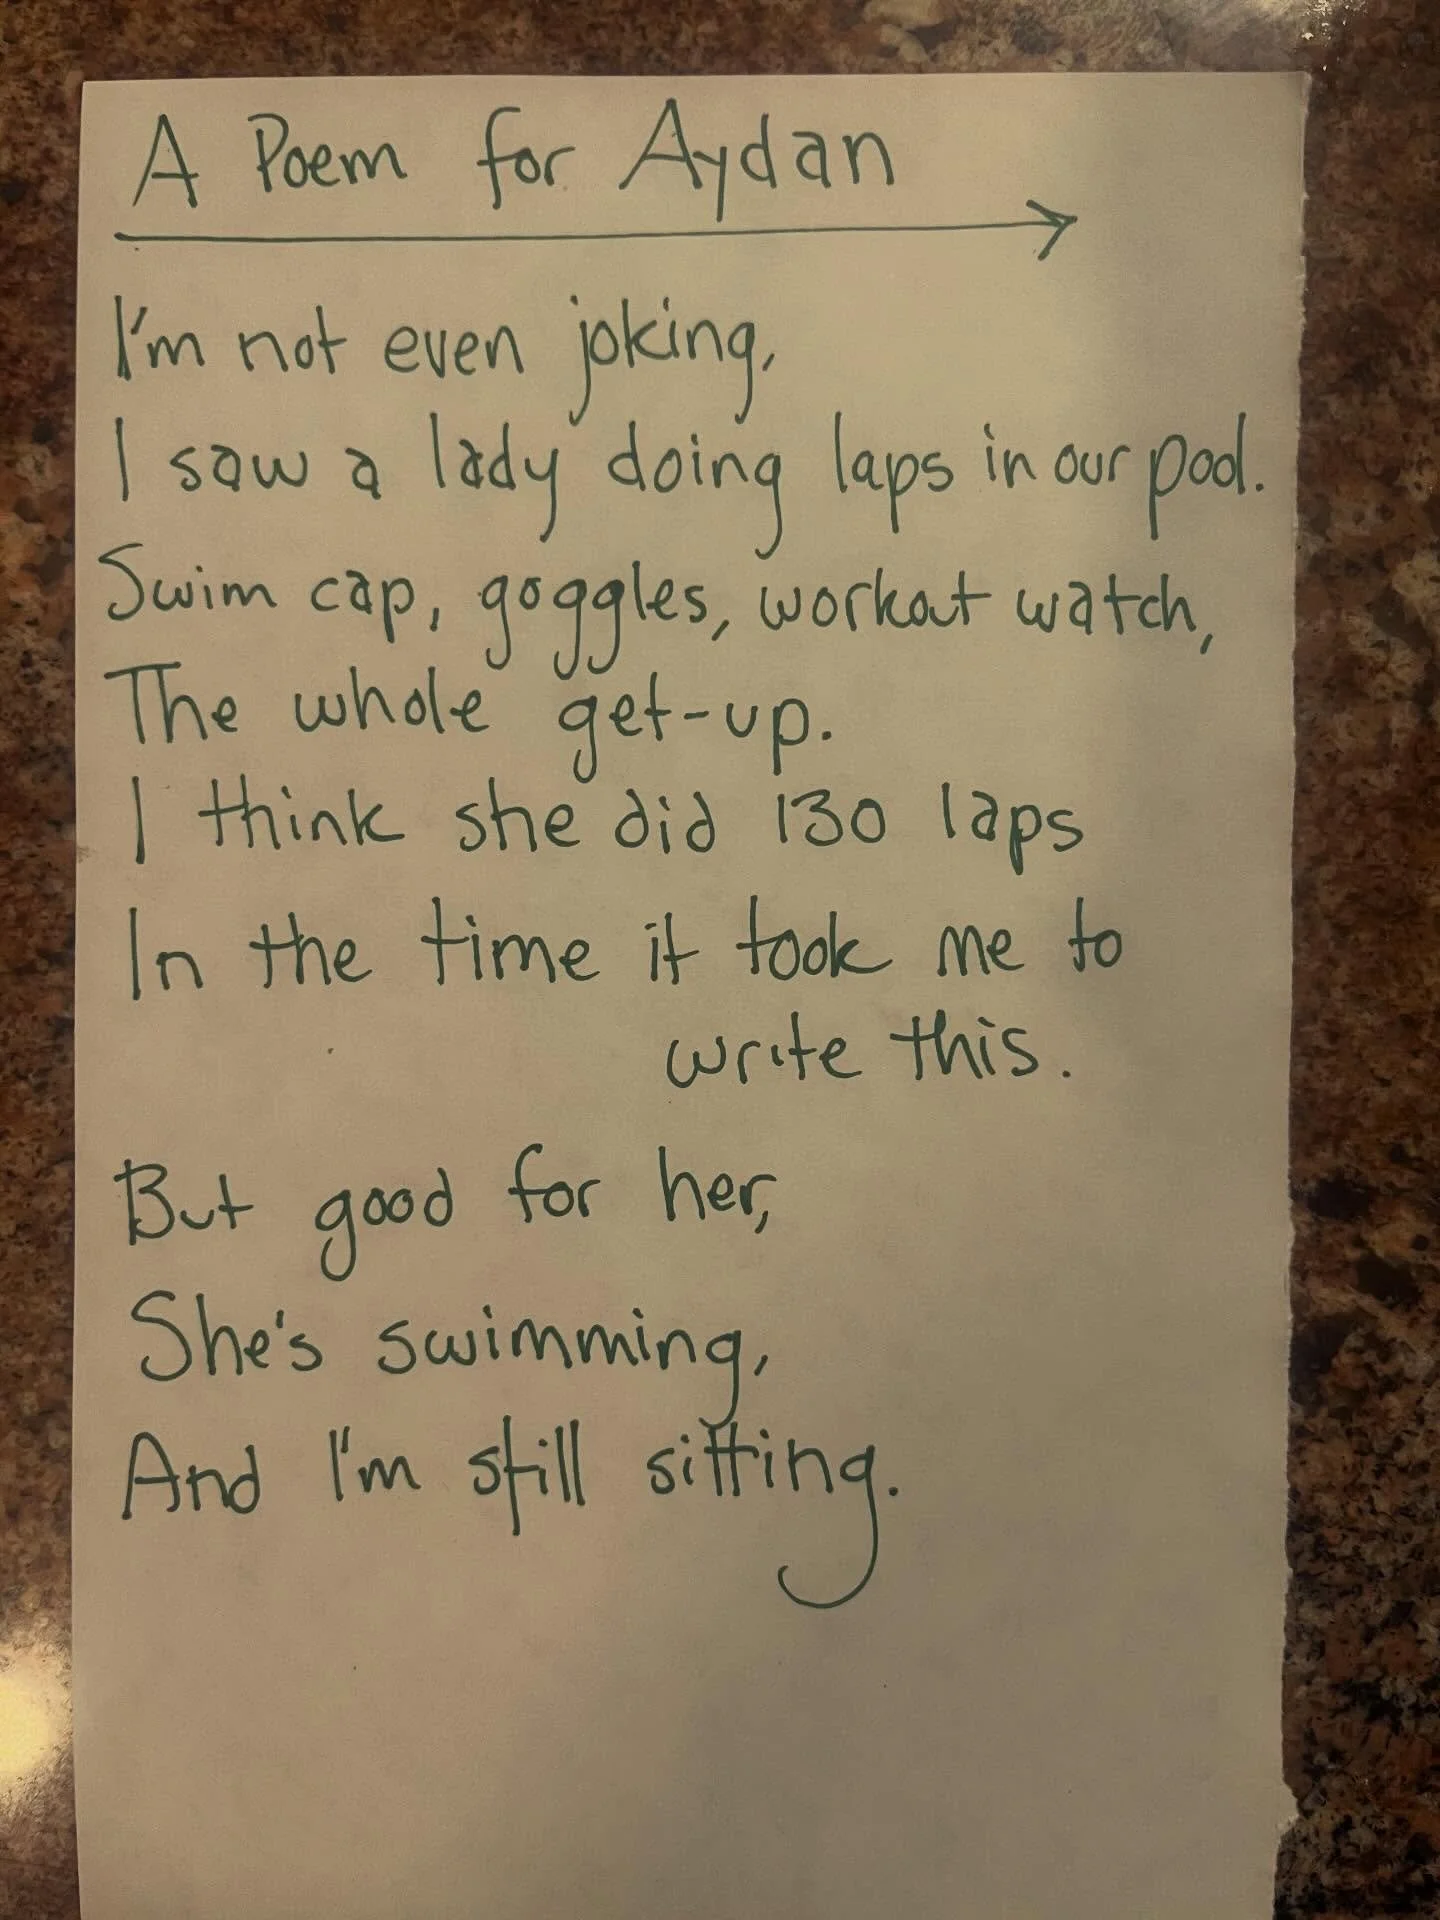 A Poem for Aydan
I'm not even joking,
I saw a lady doing laps in our pool.
Swim cap, goggles, workout watch,
The whole get-up.
I think she did 130 laps
In the time it took me to
write this.
But good for her,
She's swimming,
And I'm still sitting.